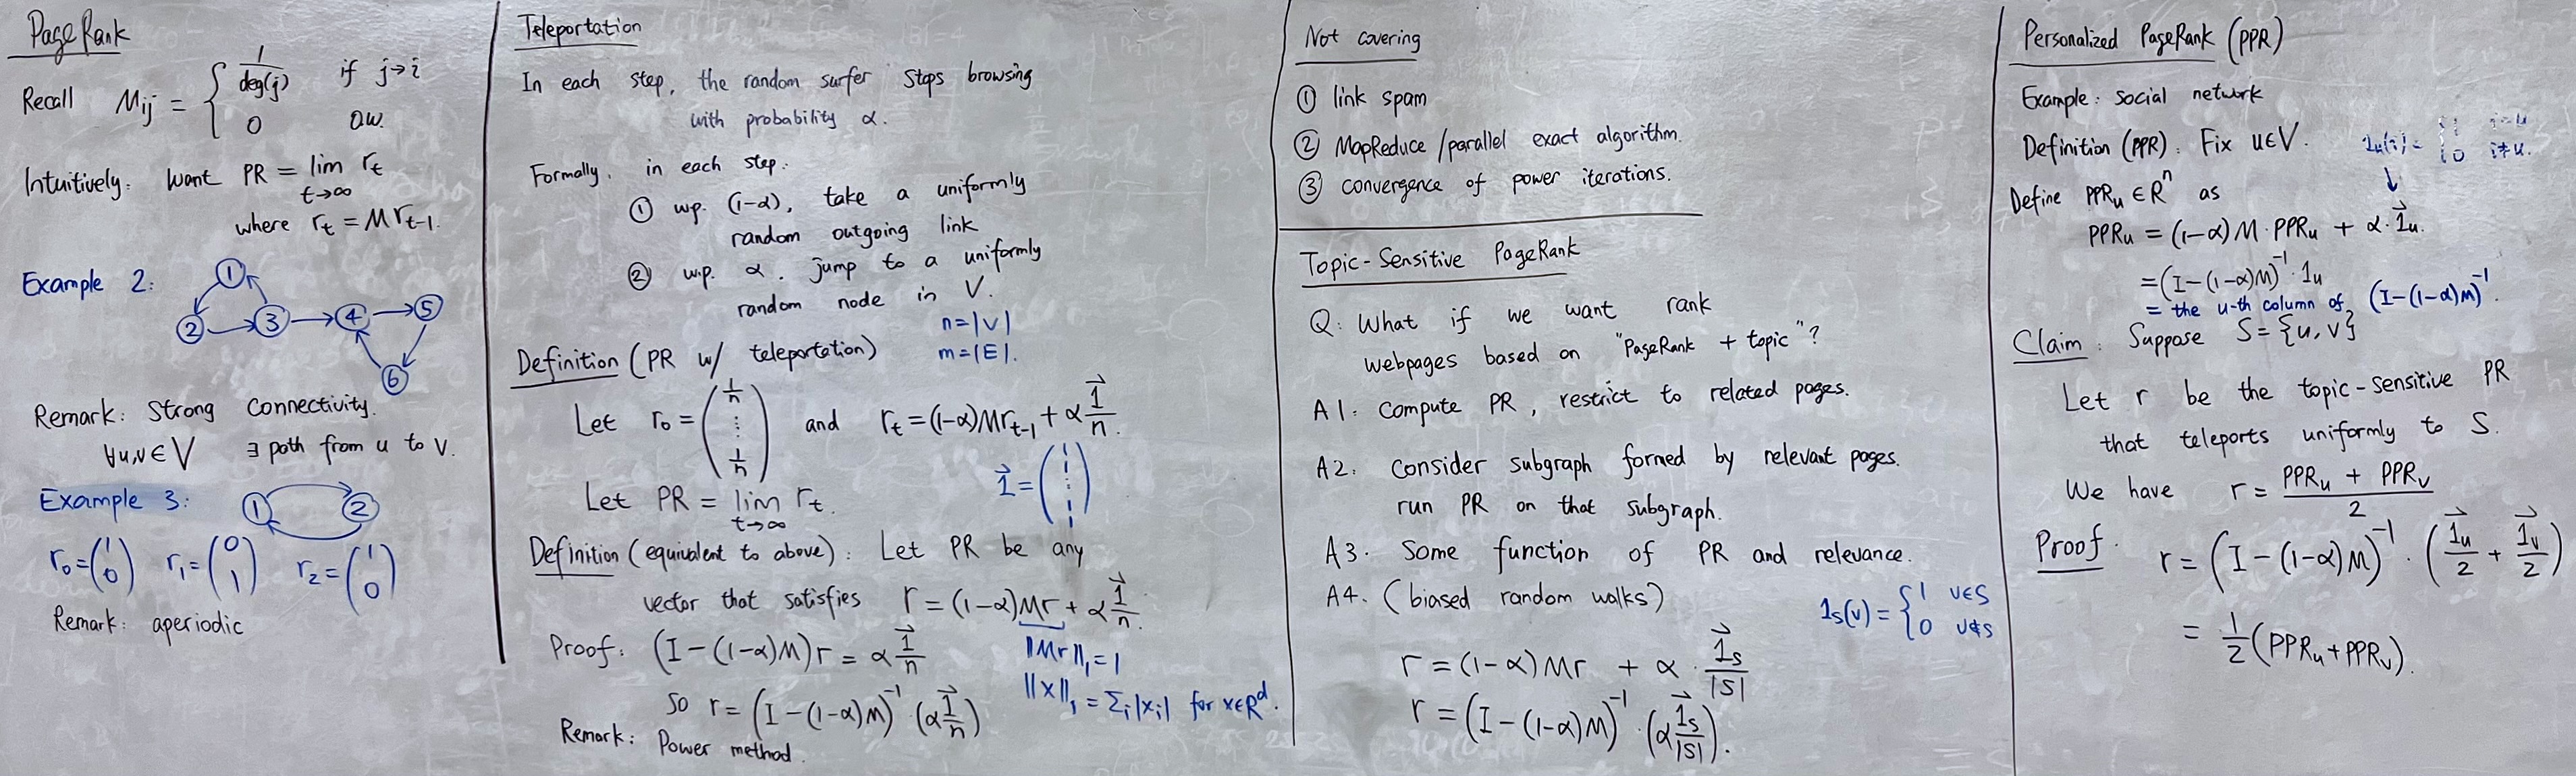 PageRank
Recall Mij = { 1/deg(j) if j→i
0 o.w.
Intuitively: Want PR = lim t→∞ rt
where rt = M rt-1.
Example 2:
1
2 3 4 5
6
Remark: Strong Connectivity.
∀u,v∈V ∃ path from u to v.
Example 3: 1 2
r0 = (1 0) r1 = (0 1) r2 = (1 0)
Remark: aperiodic
Teleportation
In each step, the random surfer stops browsing
with probability α.
Formally, in each step:
① wp. (1-α), take a uniformly
random outgoing link
② w.p. α, jump to a uniformly
random node in V.
n=|V|
m=|E|.
Definition (PR w/ teleportation)
Let r0 = (1/n ⋮ 1/n) and rt = (1-α)Mrt-1 + α 1⃗/n.
1⃗ = (1 ⋮ 1)
Let PR = lim t→∞ rt.
Definition (equivalent to above): Let PR be any
vector that satisfies r = (1-α)Mr + α 1⃗/n.
||Mr||1 = 1
||x||1 = Σi|xi| for x∈R^d.
Proof: (I-(1-α)M)r = α 1⃗/n
so r = (I-(1-α)M)^-1 (α 1⃗/n)
Remark: Power method.
Not covering
① link spam
② MapReduce/parallel exact algorithm.
③ convergence of power iterations.
Topic-Sensitive PageRank
Q: What if we want rank
webpages based on "PageRank + topic"?
A1: Compute PR, restrict to related pages.
A2: Consider subgraph formed by relevant pages.
run PR on that subgraph.
A3. Some function of PR and relevance.
A4. (biased random walks)
1s(v) = { 1 v∈S
0 v∉S
r = (1-α)Mr + α · 1⃗s/|S|
r = (I-(1-α)M)^-1 · (α 1⃗s/|S|).
Personalized PageRank (PPR)
Example: social network
Definition (PPR). Fix u∈V.
1u(i) = { 1 i=u
0 i≠u.
↓
Define PPRu ∈ R^n as
PPRu = (1-α) M · PPRu + α · 1⃗u.
= (I-(1-α)M)^-1 · 1u
= the u-th column of (I-(1-α)M)^-1.
Claim: Suppose S = {u,v}
Let r be the topic-sensitive PR
that teleports uniformly to S.
We have r = (PPRu + PPRv)/2
Proof. r = (I-(1-α)M)^-1 · (1⃗u/2 + 1⃗v/2)
= 1/2 (PPRu+PPRv).